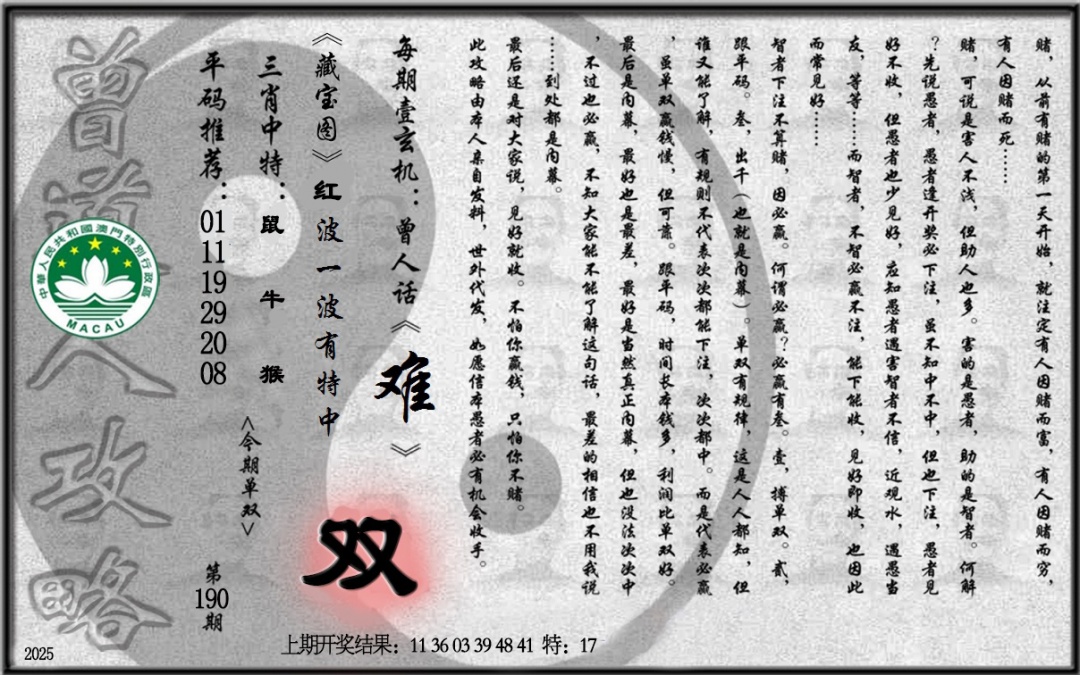 赌，从前有赌的第一天开始，就注定有人因赌而富，有人因赌而穷，
有人因赌而死……
赌，可说是害人不浅，但助人也多。害的是愚者，助的是智者。何解
？先说愚者，愚者逢开奖必下注，虽不知中不中，但也下注，愚者见
好不收，但愚者也少见好，应知愚者遇害智者不信，近观水，遇愚当
友，等等……而智者，不智必赢不注，能下能收，见好即收，也因此
而常见好……
智者下注不算赌，因必赢。何谓必赢？必赢有叁。壹，搏单双。贰，
跟平码。叁，出千（也就是内幕）。单双有规律，这是人人都知，但
谁又能了解，有规则不代表次次都能下注，次次都中。而是代表必赢
，虽单双赢钱慢，但可靠。跟平码，时间长本钱多，利润比单双好。
最后是内幕，最好也是最差，最好是当然真正内幕，但也没法次次中
，不过也必赢，不知大家能不能了解这句话，最差的相信也不用我说
……到处都是内幕。
最后还是对大家说，见好就收。不怕你赢钱，只怕你不赌。
此攻略由本人亲自发料，世外代发，如愿信本愚者必有机会收手。
每期壹玄机：曾人话《难》
《藏宝图》红波一波有特中
双
三肖中特：鼠 牛 猴
<今期单双>
平码推荐：01 11 19 29 20 08
第190期
曾道人攻略
中華人民共和國澳門特別行政區
MACAU
上期开奖结果：11 36 03 39 48 41 特：17
2025